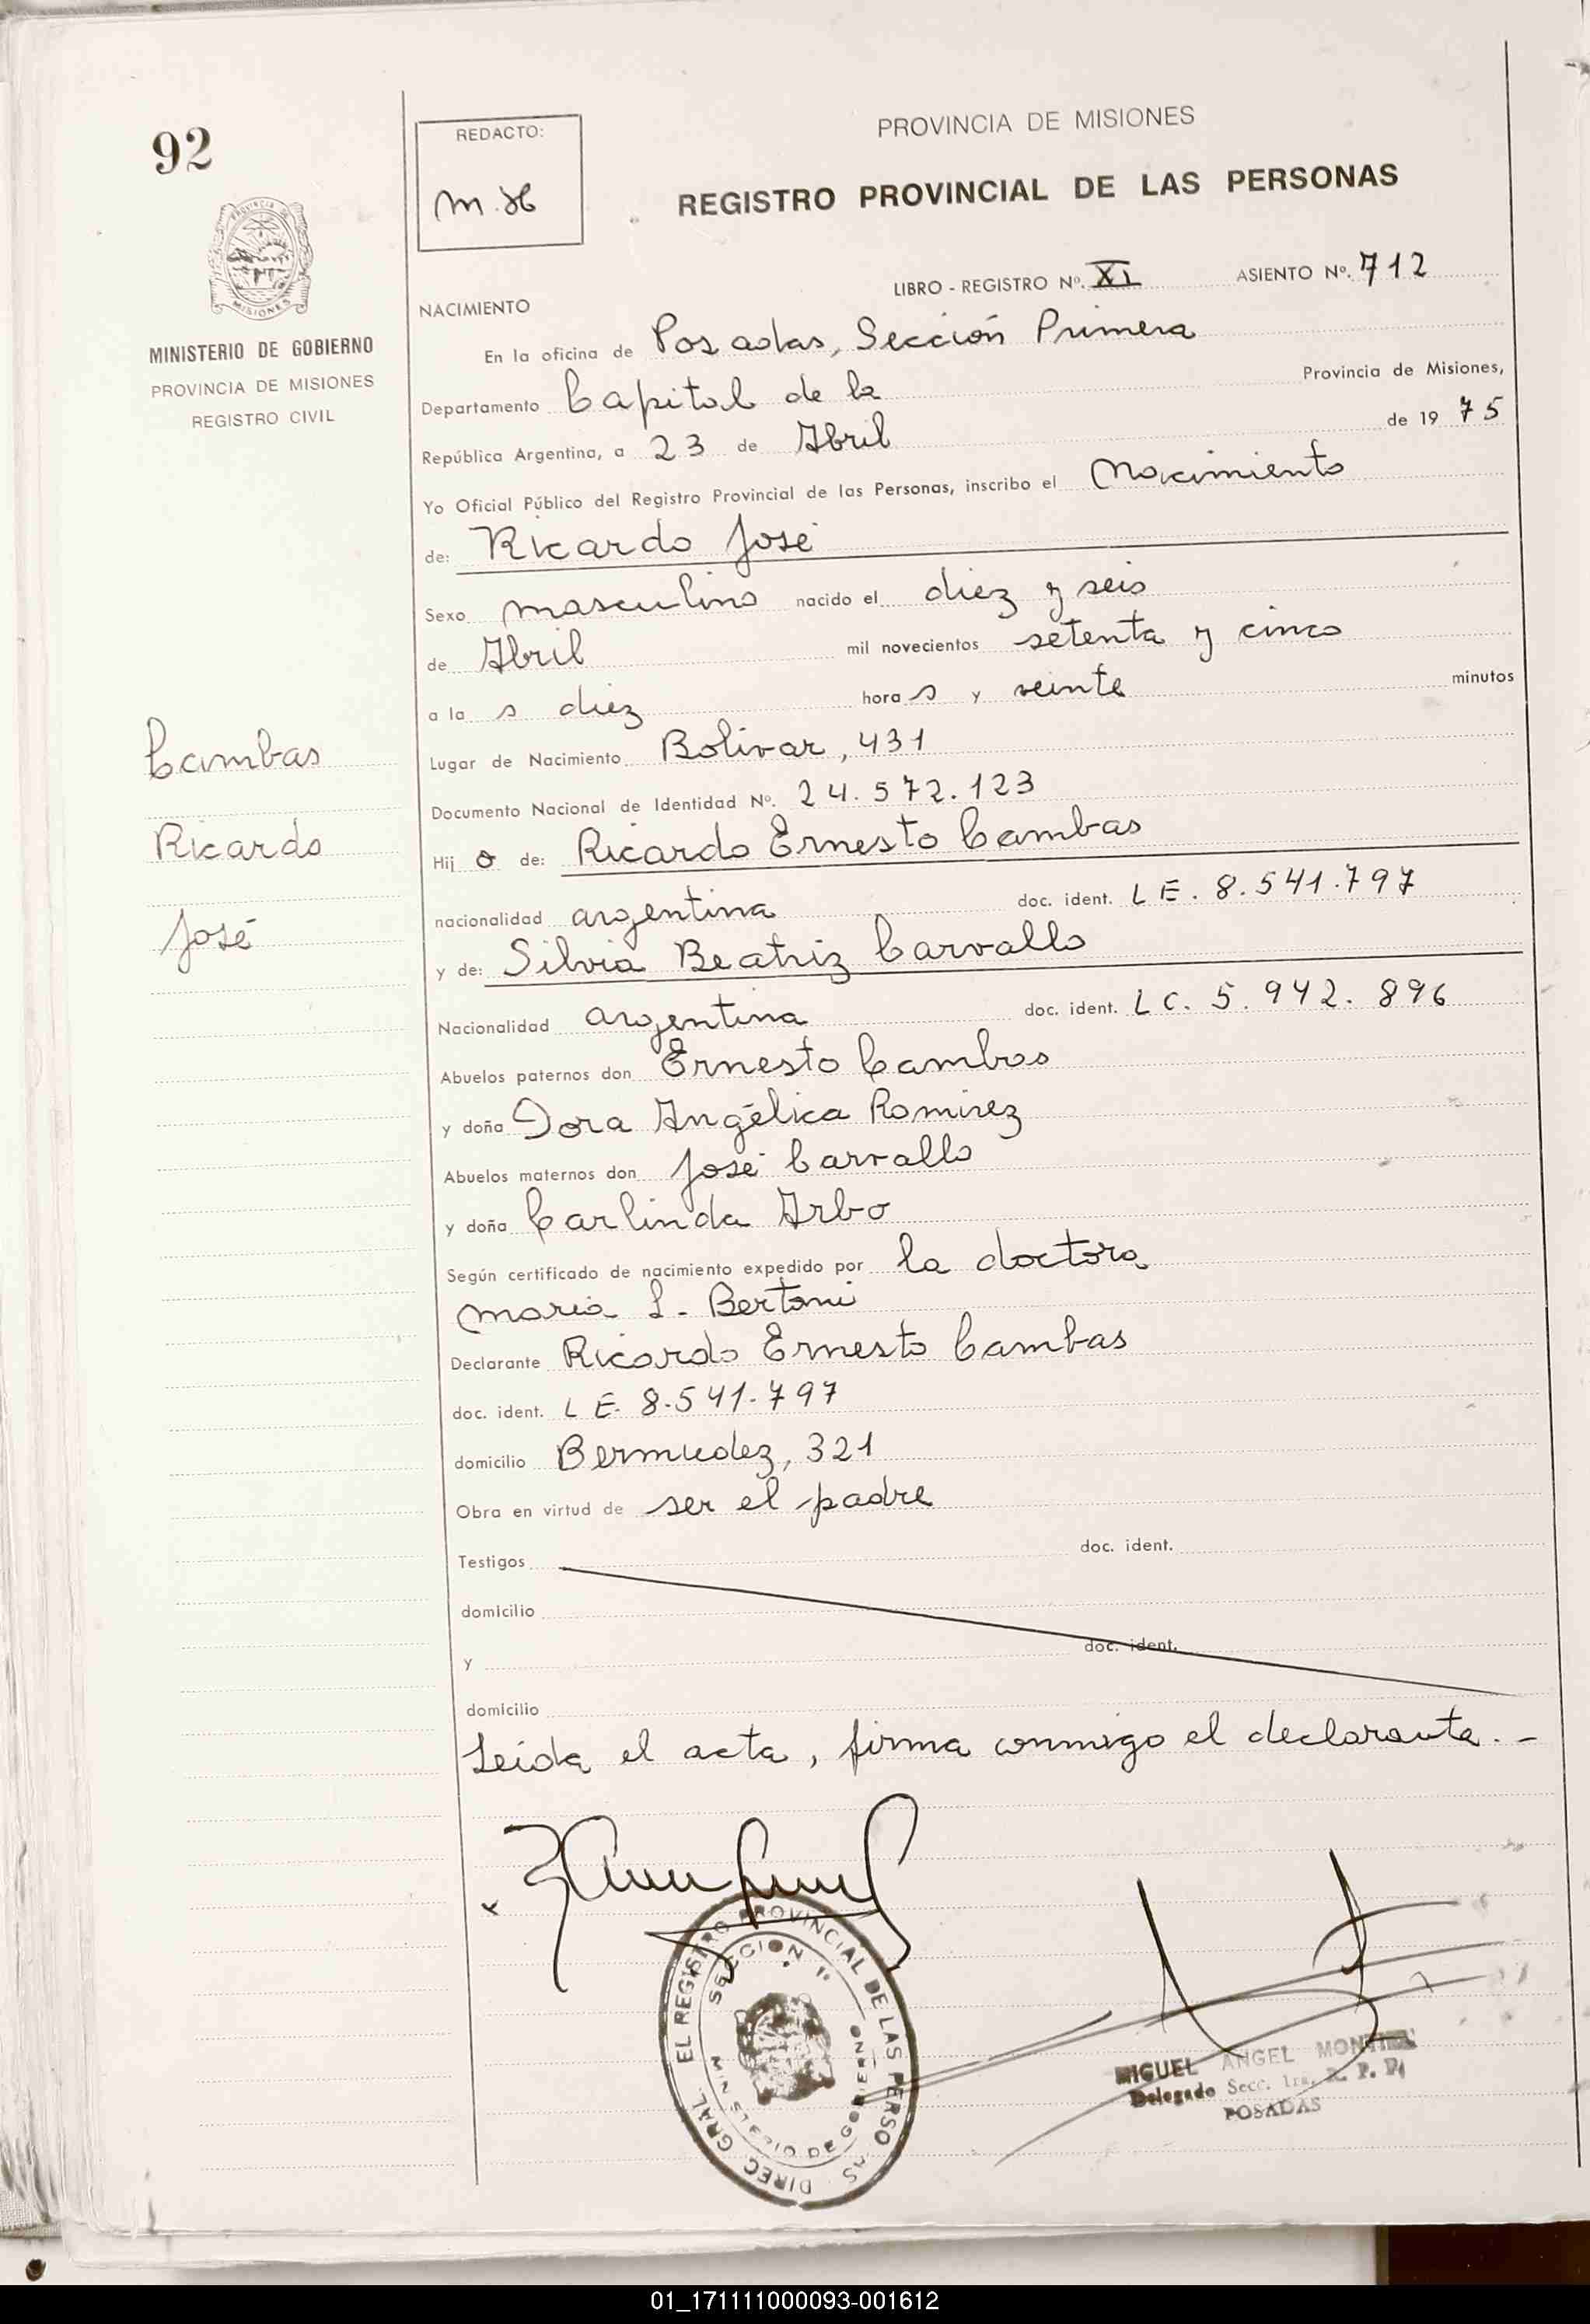 92
REDACTO:
m.H
PROVINCIA DE MISIONES
REGISTRO PROVINCIAL DE LAS PERSONAS
MISIONES
MINISTERIO DE GOBIERNO
PROVINCIA DE MISIONES
REGISTRO CIVIL
LIBRO - REGISTRO Nº. XI ASIENTO Nº. 712
NACIMIENTO
En la oficina de Posadas, Sección Primera
Departamento Capital de la Provincia de Misiones,
República Argentina, a 23 de Abril de 1975
Yo Oficial Público del Registro Provincial de las Personas, inscribo el Nacimiento
de: Ricardo José
Sexo masculino nacido el diez y seis
de Abril mil novecientos setenta y cinco
a la s diez hora s y veinte minutos
Lugar de Nacimiento Bolivar, 431
Documento Nacional de Identidad Nº. 24.572.123
Hij o de: Ricardo Ernesto Cambas
nacionalidad argentina doc. ident. L E. 8.541.797
y de: Silvia Beatriz Carvallo
Nacionalidad argentina doc. ident. L C. 5.942.896
Abuelos paternos don Ernesto Cambas
y doña Dora Angélica Ramirez
Abuelos maternos don José Carvallo
y doña Carlinda Arbo
Según certificado de nacimiento expedido por la doctora
Maria L. Bertoni
Declarante Ricardo Ernesto Cambas
doc. ident. L E. 8.541.797
domicilio Bermudez, 321
Obra en virtud de ser el padre
Testigos doc. ident.
domicilio
y doc. ident.
domicilio
Leida el acta, firma conmigo el declarante.-
Cambas
Ricardo
José
DIREC. GRAL. EL REGISTRO PROVINCIAL DE LAS PERSO AS
SECCION 1ª
MINISTERIO DE GOBIERNO
MIGUEL ANGEL
Delegado Secc. 1ra. R. P. P.
POSADAS
01_171111000093-001612